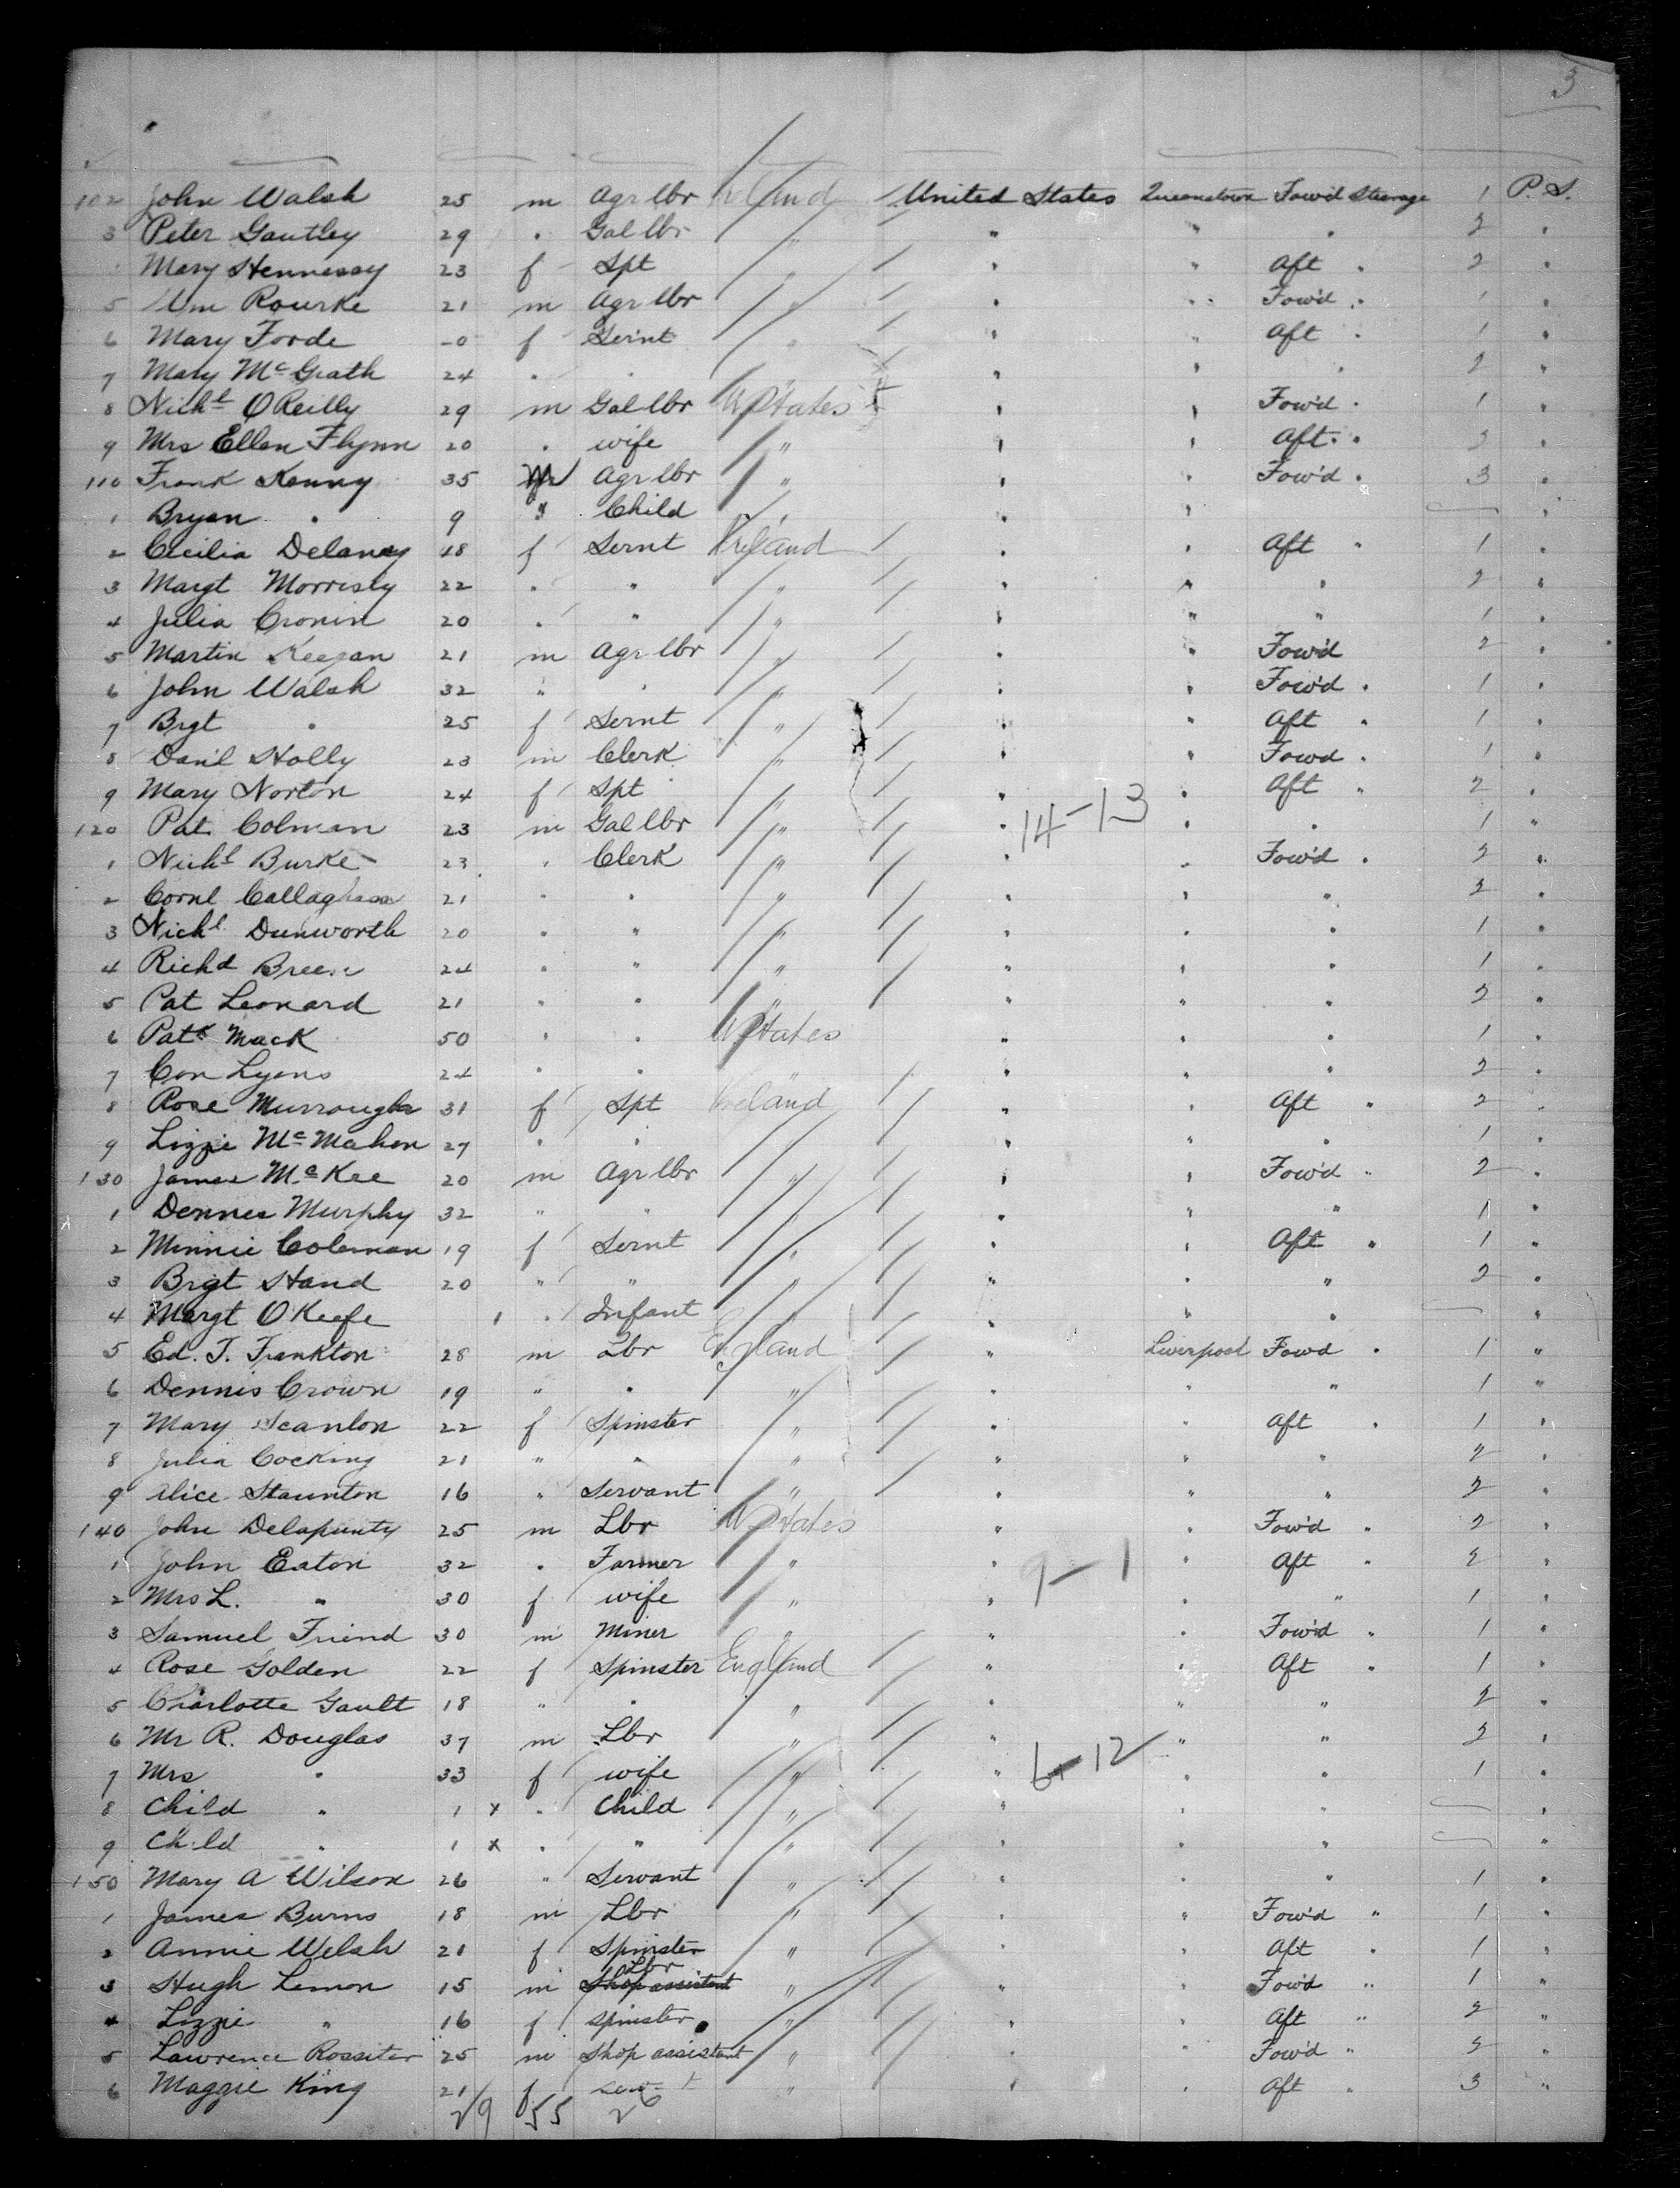 3
102 John Walsh 25 m Agr lbr Ireland United States Queenstown Fow'd Steerage 1 P. S.
3 Peter Gautley 29 " Gal lbr " " " " 2 "
Mary Hennessy 23 f Spt " " " Aft " 2 "
5 Wm Rourke 21 m Agr lbr " " " Fow'd " 1 "
6 Mary Forde f Sernt " " " Aft " 1 "
7 Mary McGrath 24 " " " " " " 2 "
8 Nichl O'Reilly 29 m Gal lbr U States " " Fow'd " 1 "
9 Mrs Ellen Flynn 20 " wife " " " Aft " 2 "
110 Frank Kenny 35 m Agr lbr " " " Fow'd " 3 "
1 Bryan " 9 " Child " " " "
2 Cicilia Delaney 18 f Sernt Ireland " " Aft " 1 "
3 Margt Morrisly 22 " " " " " " 2 "
4 Julia Cronin 20 " " " " " " 1 "
5 Martin Keegan 21 m Agr lbr " " " Fow'd 2 "
6 John Walsh 32 " " " " " Fow'd " 1 "
7 Brgt " 25 f Sernt " " " Aft " 1 "
8 Danl Holly 23 m Clerk " " " Fow'd " 1 "
9 Mary Norton 24 f Spt " " " Aft " 2 "
14-13
120 Pat Colman 23 m Gal lbr " " " " 1 "
1 Nichl Burke 23 " Clerk " " " Fow'd " 2 "
2 Cornl Callaghan 21 " " " " " " 2 "
3 Nichl Dunworth 20 " " " " " " 1 "
4 Richd Breen 24 " " " " " " 1 "
5 Pat Leonard 21 " " " " " " 2 "
6 Patk Mack 50 " " U States " " " 1 "
7 Con Lyons 24 " " " " " " 2 "
8 Rose Murrough 31 f Spt Ireland " " Aft " 2 "
9 Lizzie McMahon 27 " " " " " " 1 "
130 James McKee 20 m Agr lbr " " " Fow'd " 2 "
1 Dennes Murphy 32 " " " " " " 1 "
2 Minnie Coleman 19 f Sernt " " " Aft " 1 "
3 Brgt Hand 20 " " " " " " 2 "
4 Margt O'Keefe 1 " Infant " " " " "
5 Ed. T. Frankton 28 m Lbr England " Liverpool Fow'd " 1 "
6 Dennis Crown 19 " " " " " " 1 "
7 Mary Scanlon 22 f Spinster " " " Aft " 1 "
8 Julia Cocking 21 " " " " " " 2 "
9 Alice Staunton 16 " Servant " " " " 2 "
140 John Delapunty 25 m Lbr U States " " Fow'd " 2 "
1 John Eaton 32 " Farmer " " " Aft " 2 "
9-1
2 Mrs L. " 30 f wife " " " " 1 "
3 Samuel Friend 30 m Miner " " " Fow'd " 1 "
4 Rose Golden 22 f Spinster England " " Aft " 1 "
5 Charlotte Gault 18 " " " " " " 2 "
6 Mr R. Douglas 37 m Lbr " " " " 2 "
6-12
7 Mrs " 33 f wife " " " " 1 "
8 Child " 1 x " Child " " " " "
9 Child " 1 x " " " " " " "
150 Mary A Wilson 26 " Servant " " " " 1 "
1 James Burns 18 m Lbr " " " Fow'd " 1 "
2 Annie Welsh 21 f Spinster " " " Aft " 1 "
Lbr
3 Hugh Lemon 15 m Shop assistant " " " Fow'd " 1 "
4 Lizzie " 16 f spinster " " " Aft " 2 "
5 Lawrence Rossiter 25 m Shop assistant " " " Fow'd " 2 "
6 Maggie King 21 f " " " Aft " 3 "
29 55 26